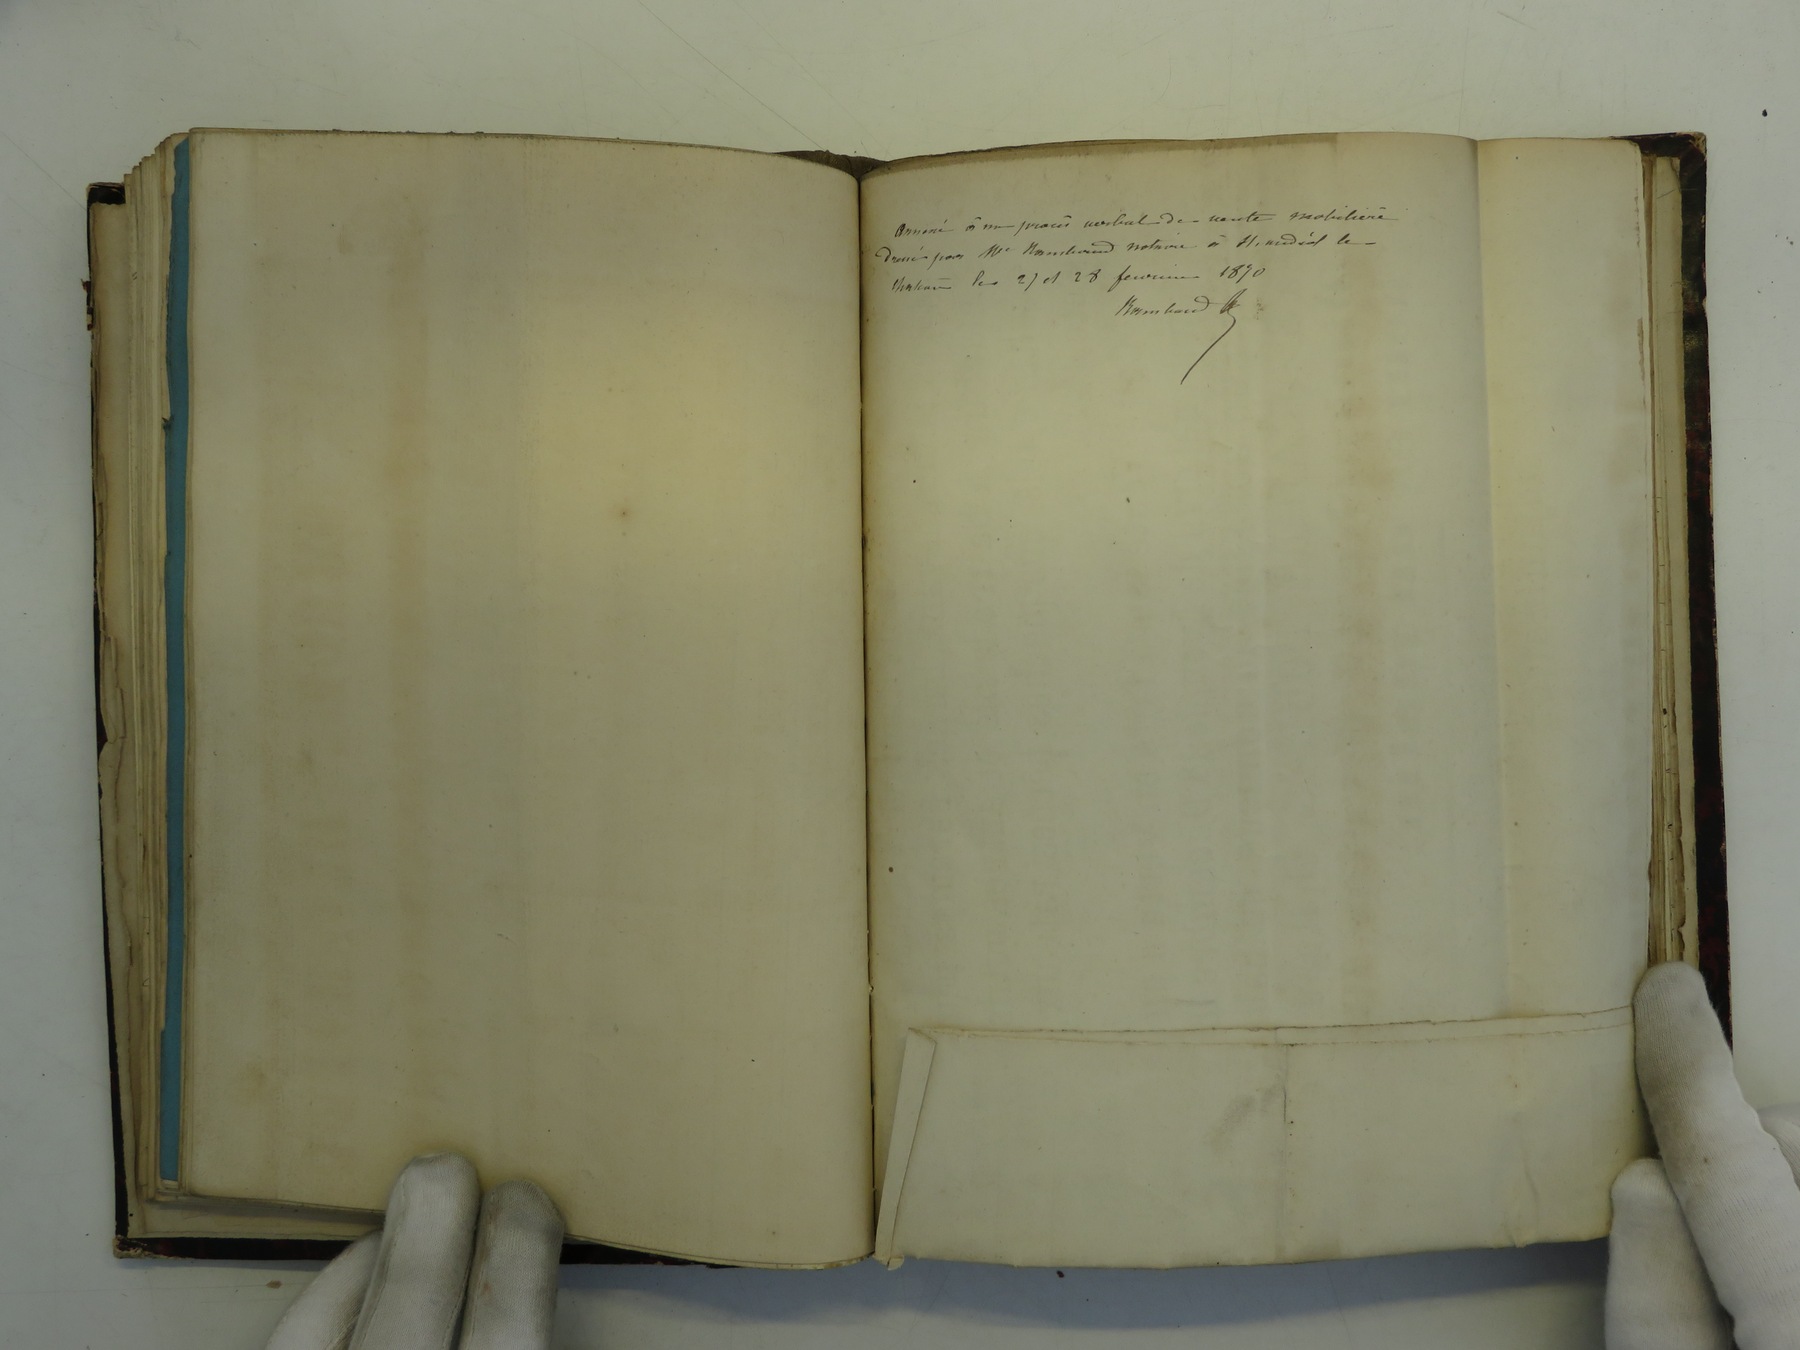 Annexé à un procès verbal de vente mobilière
dressé par Me Rambaud notaire à St. André le
Château les 27 et 28 fevrier 1870
Rambaud